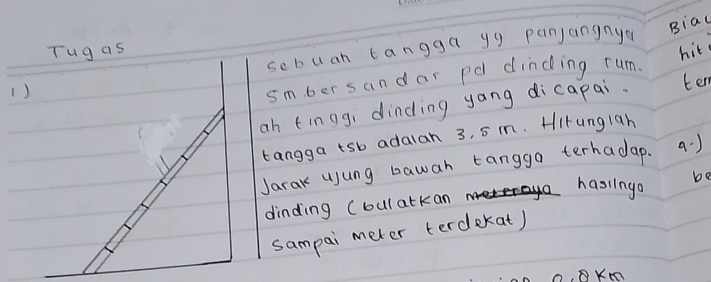 Tugas
1)
sebuah tangga yg panjangnya
5m bersandar pd dinding rum.
ah tinggi dinding yang dicapai.
tangga tsb adalah 3,5 m. Hitunglah
Jarak ujung bawah tangga terhadap.
dinding (bulatkan hasilnya
sampai meter terdekat)
Biay
hit
tem
a.)
be
0,8 km